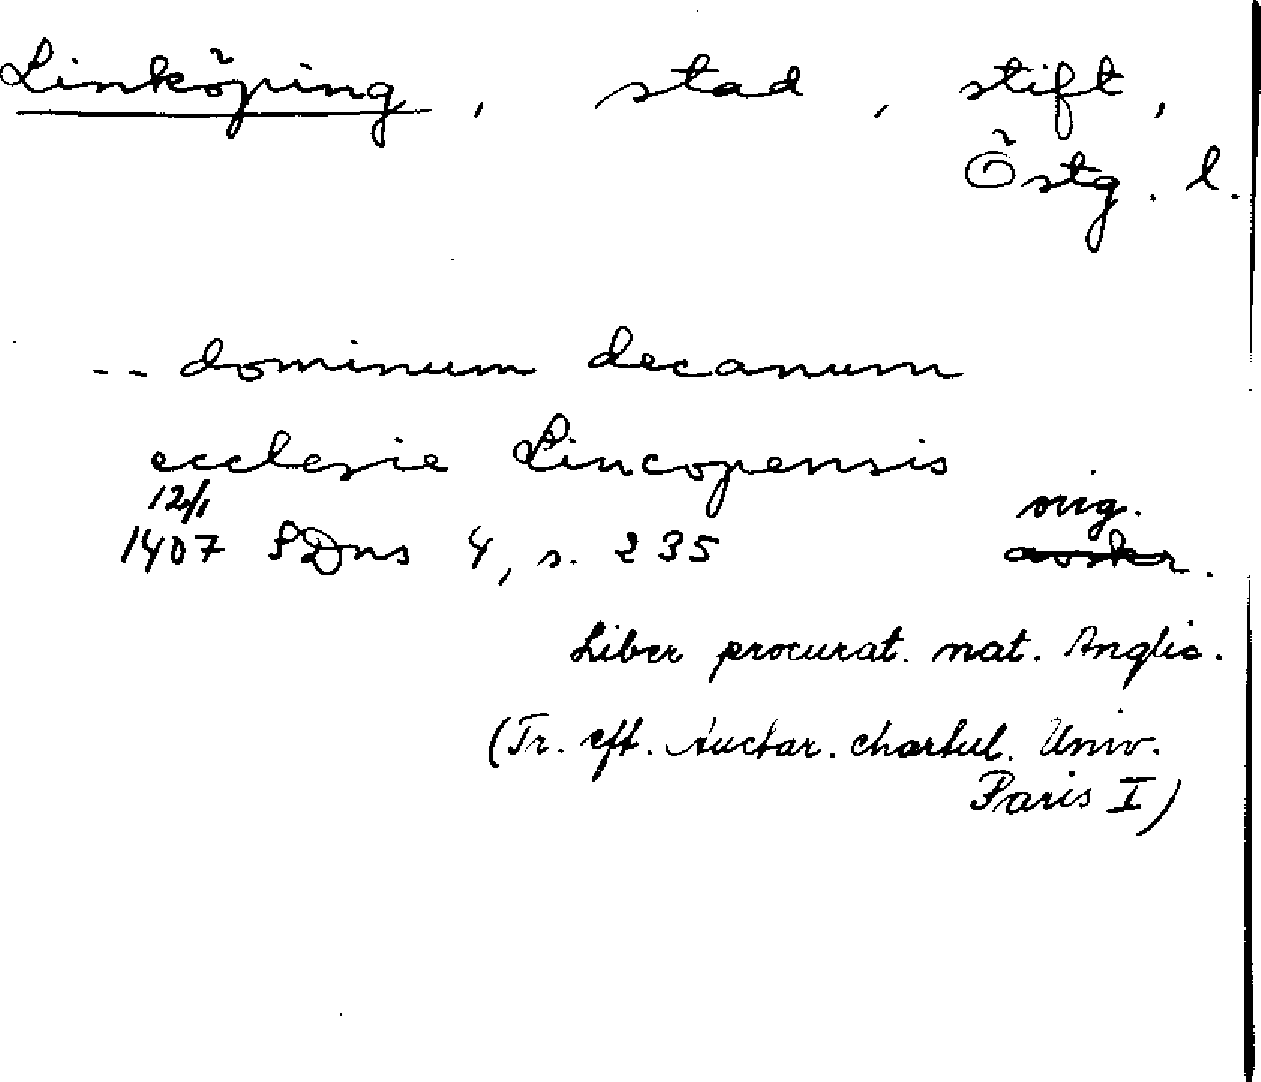 Linköping, stad, stift,
Östg. l.
-- dominum decanum
ecclesie Lincopensis
12/1 orig.
1407 SDns 4, s. 235 avskr.
Liber procurat. nat. Anglic.
(Tr. eft. Auctar. chartul. Univ.
Paris I)